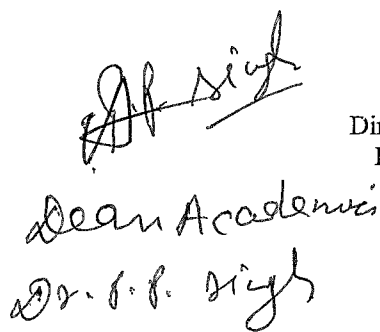 Singh
Dir
Dean Academics
Dr. P.P. Singh